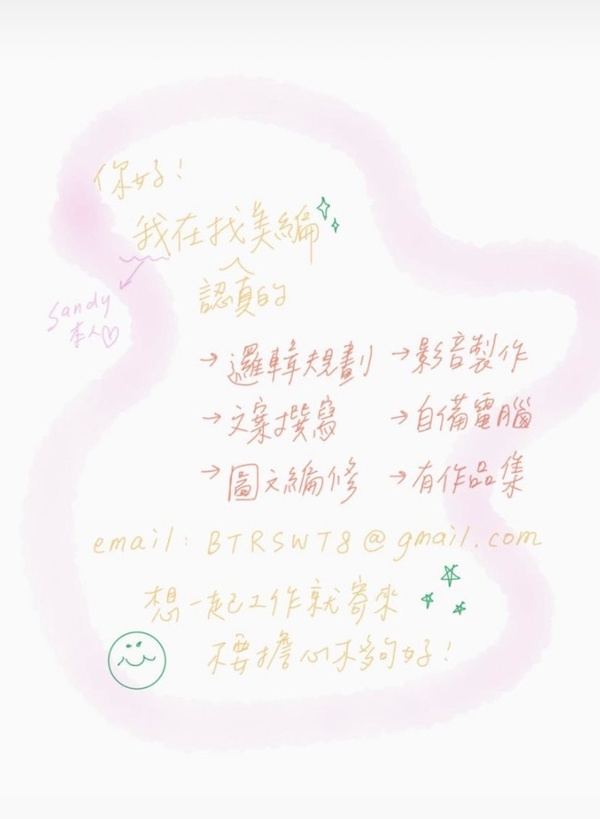 你好！
我在找美編
認真的
Sandy
本人♡
→邏輯規劃 →影音製作
→文案撰寫 →自備電腦
→圖文編修 →有作品集
email: BTRSWT8@gmail.com
想一起工作就寄來
不要擔心不夠好！